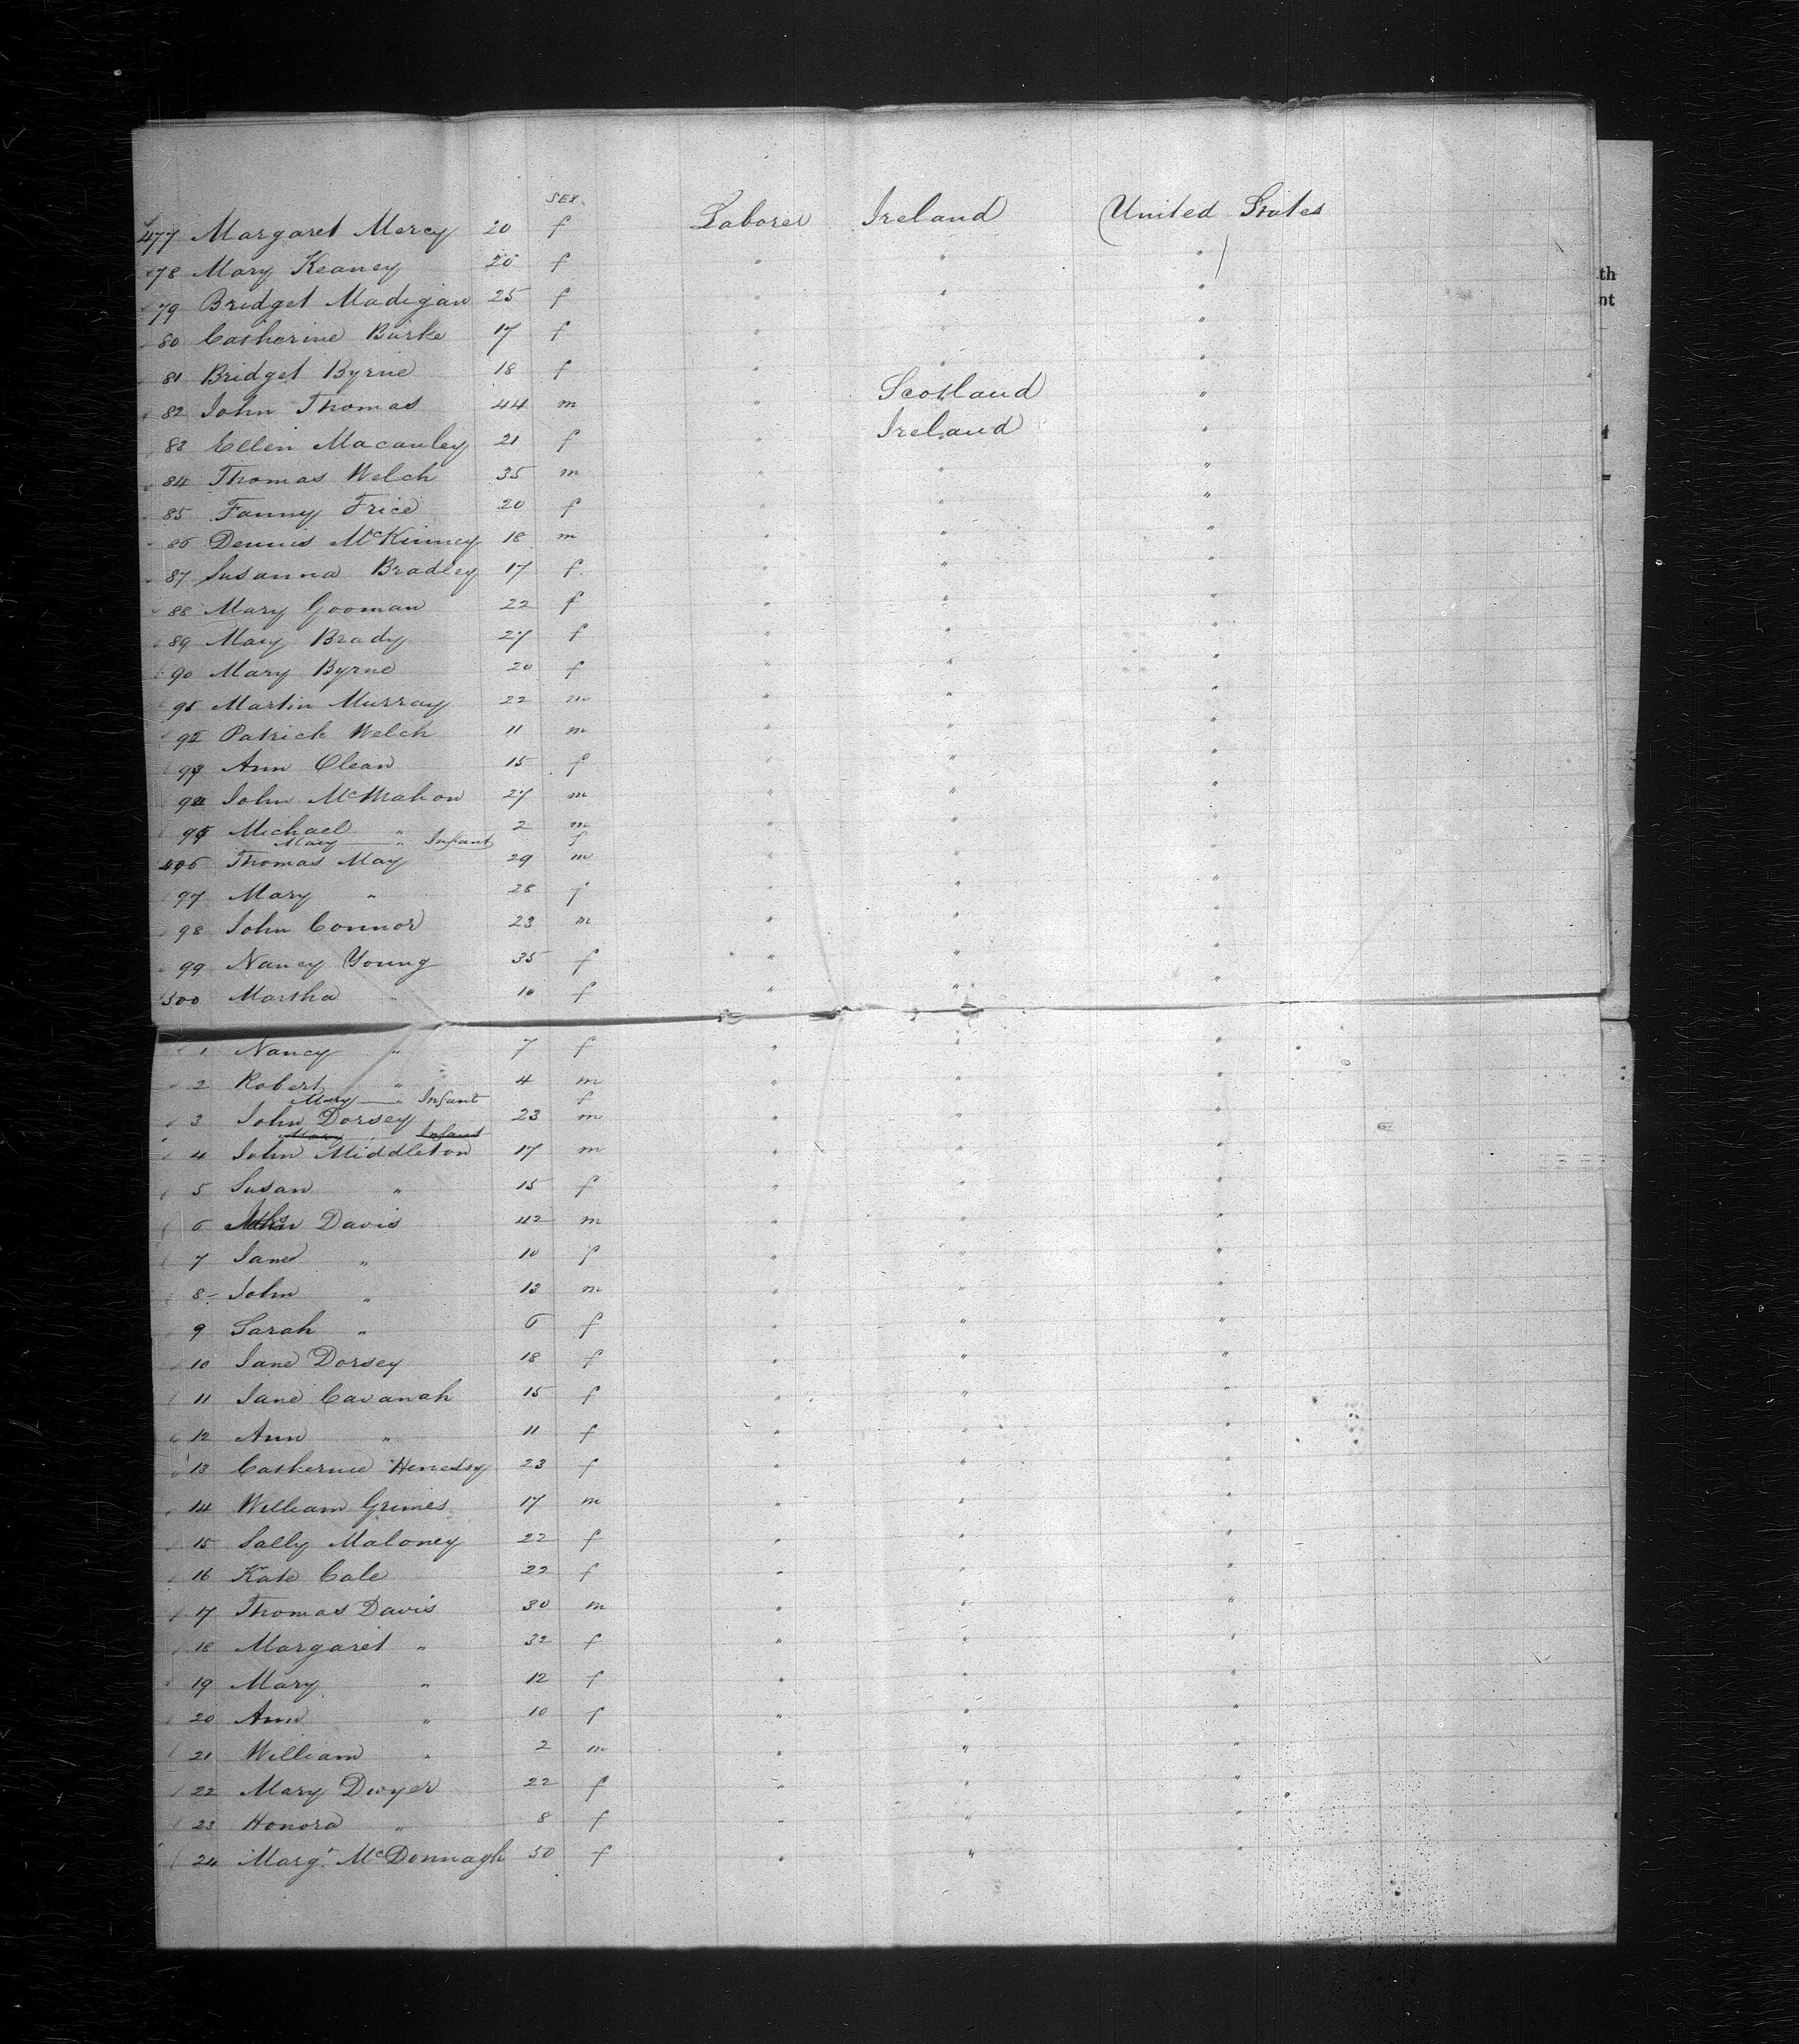 SEX.
477 Margaret Mercy 20 f Laborer Ireland United States
78 Mary Keaney 20 f " " "
79 Bridget Madigan 25 f " " "
80 Catherine Burke 17 f " " "
81 Bridget Byrne 18 f " " "
82 John Thomas 44 m " Scotland "
83 Ellen Macauley 21 f " Ireland "
84 Thomas Welch 35 m " " "
85 Fanny Frice 20 f " " "
86 Dennis McKinney 18 m " " "
87 Susanna Bradley 17 f " " "
88 Mary Gooman 22 f " " "
89 Mary Brady 27 f " " "
90 Mary Byrne 20 f " " "
91 Martin Murray 22 m " " "
92 Patrick Welch 11 m " " "
93 Ann Clean 15 f " " "
94 John McMahon 27 m " " "
95 Michael " 2 m " " "
Mary " Infant f
496 Thomas May 29 m " " "
97 Mary " 28 f " " "
98 John Connor 23 m " " "
99 Nancy Young 35 f " " "
500 Martha " 10 f " " "
1 Nancy " 7 f " " "
2 Robert " 4 m " " "
Mary " Infant f
3 John Dorsey 23 m " " "
Mary " Infant
4 John Middleton 17 m " " "
5 Susan " 15 f " " "
6 Davis 42 m " " "
7 Jane " 10 f " " "
8 John " 13 m " " "
9 Sarah " 6 f " " "
10 Jane Dorsey 18 f " " "
11 Jane Cavanah 15 f " " "
12 Ann " 11 f " " "
13 Catherine Henessy 23 f " " "
14 William Grimes 17 m " " "
15 Sally Maloney 22 f " " "
16 Kate Cale 22 f " " "
17 Thomas Davis 30 m " " "
18 Margaret " 32 f " " "
19 Mary " 12 f " " "
20 Ann " 10 f " " "
21 William " 2 m " " "
22 Mary Dwyer 22 f " " "
23 Honora " 8 f " " "
24 Margt McDonnagh 50 f " " "
th
nt